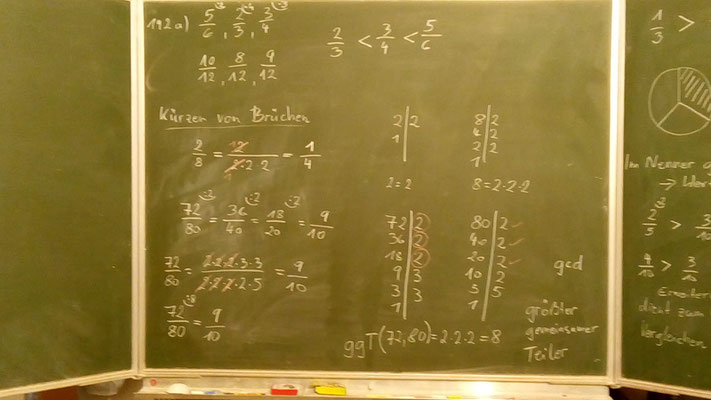 192a) 5/6 ·2, 2/3 ·4, 3/4 ·3
10/12, 8/12, 9/12
2/3 < 3/4 < 5/6
Kürzen von Brüchen
2/8 = 1·2/2·2·2 = 1/4
72/80 :2 = 36/40 :2 = 18/20 :2 = 9/10
72/80 = 2·2·2·3·3/2·2·2·2·5 = 9/10
72/80 :8 = 9/10
2 | 2
1 |
2 = 2
8 | 2
4 | 2
2 | 2
1 |
8 = 2·2·2
72 | 2
36 | 2
18 | 2
9 | 3
3 | 3
1 |
80 | 2
40 | 2
20 | 2
10 | 2
5 | 5
1 |
ggT(72,80) = 2·2·2 = 8
gcd
größter
gemeinsamer
Teiler
1/3 >
Im Nenner
→ Wert
2/5 > 3/10
4/10 > 3/10
Erweitern
dient zum
Vergleichen